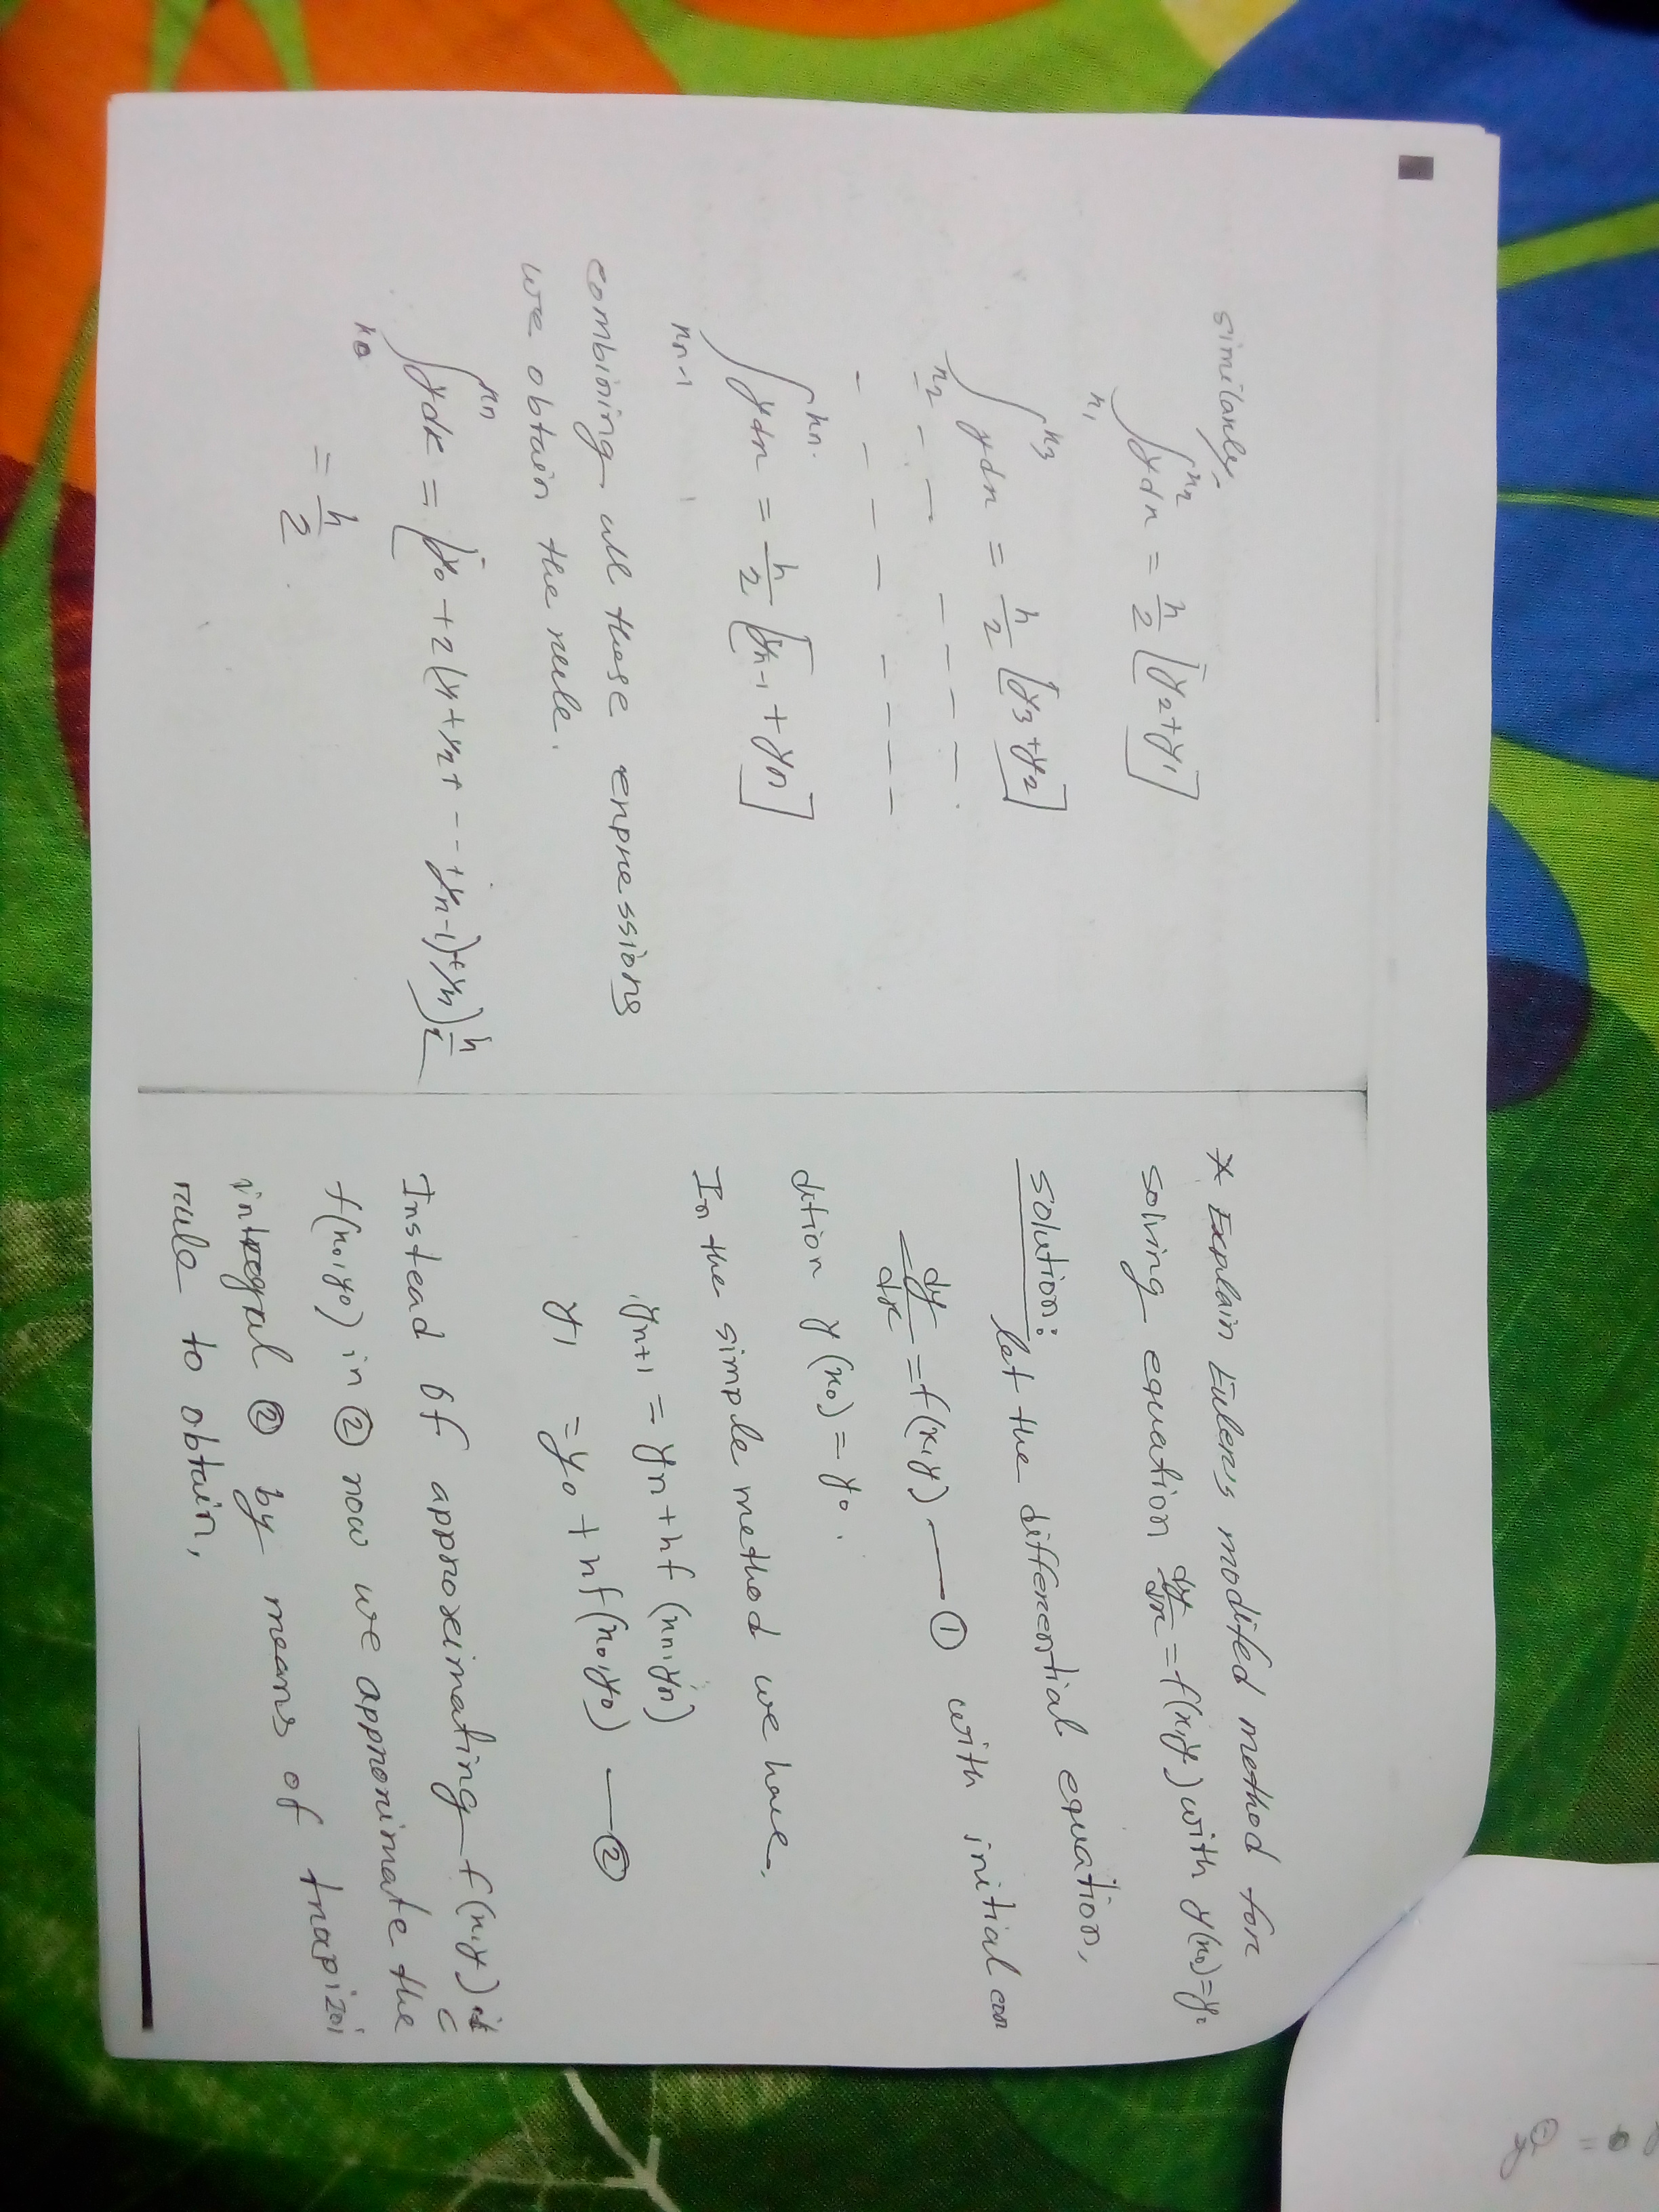 similarly,
∫_{x1}^{x2} y dx = h/2 [y2+y1]
∫_{x2}^{x3} y dx = h/2 [y3+y2]
- - - - - - - -
- - - - - - - -
∫_{xn-1}^{xn} y dx = h/2 [yn-1 + yn]
combining all these expressions
we obtain the rule.
∫_{x0}^{xn} y dx = [y0 + 2(y1+y2+ --- +yn-1)+yn] h/2
= h/2
* Explain Euler's modifed method for
solving equation dy/dx = f(x,y) with y(x0)=y0
solution:
let the differential equation,
dy/dx = f(x,y) — ① with initial con
dition y(x0) = y0.
In the simple method we have,
yn+1 = yn+hf (xn,yn)
y1 = y0 + hf(x0,y0) — ②
Instead of approximating f(x,y)
f(x0,y0) in ② now we approximate the
integral ② by means of trapizoi
rule to obtain,